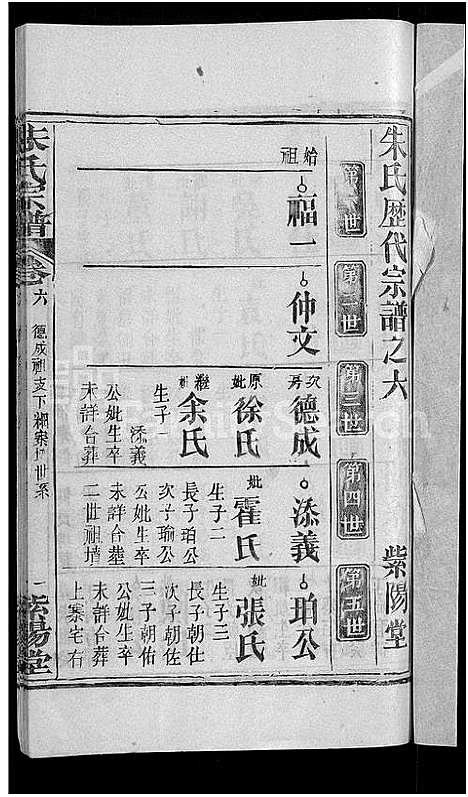 朱氏歷代宗譜之六
紫陽堂
第一世
第二世
第三世
第四世
第五世
始祖
福一
仲文
次房
德成
原妣
徐氏
繼妣
余氏
生子一
添義
公妣生卒
未詳合葬
添義
妣
霍氏
生子二
長子珀公
次子瑜公
公妣生卒
未詳合塟
二世祖墳
珀公
妣
張氏
生子三
長子朝仕
次子朝佐
三子朝佑
公妣生卒
未詳合葬
上寨宅右
朱氏宗譜
卷六
德成祖支下
世系
一
紫陽堂